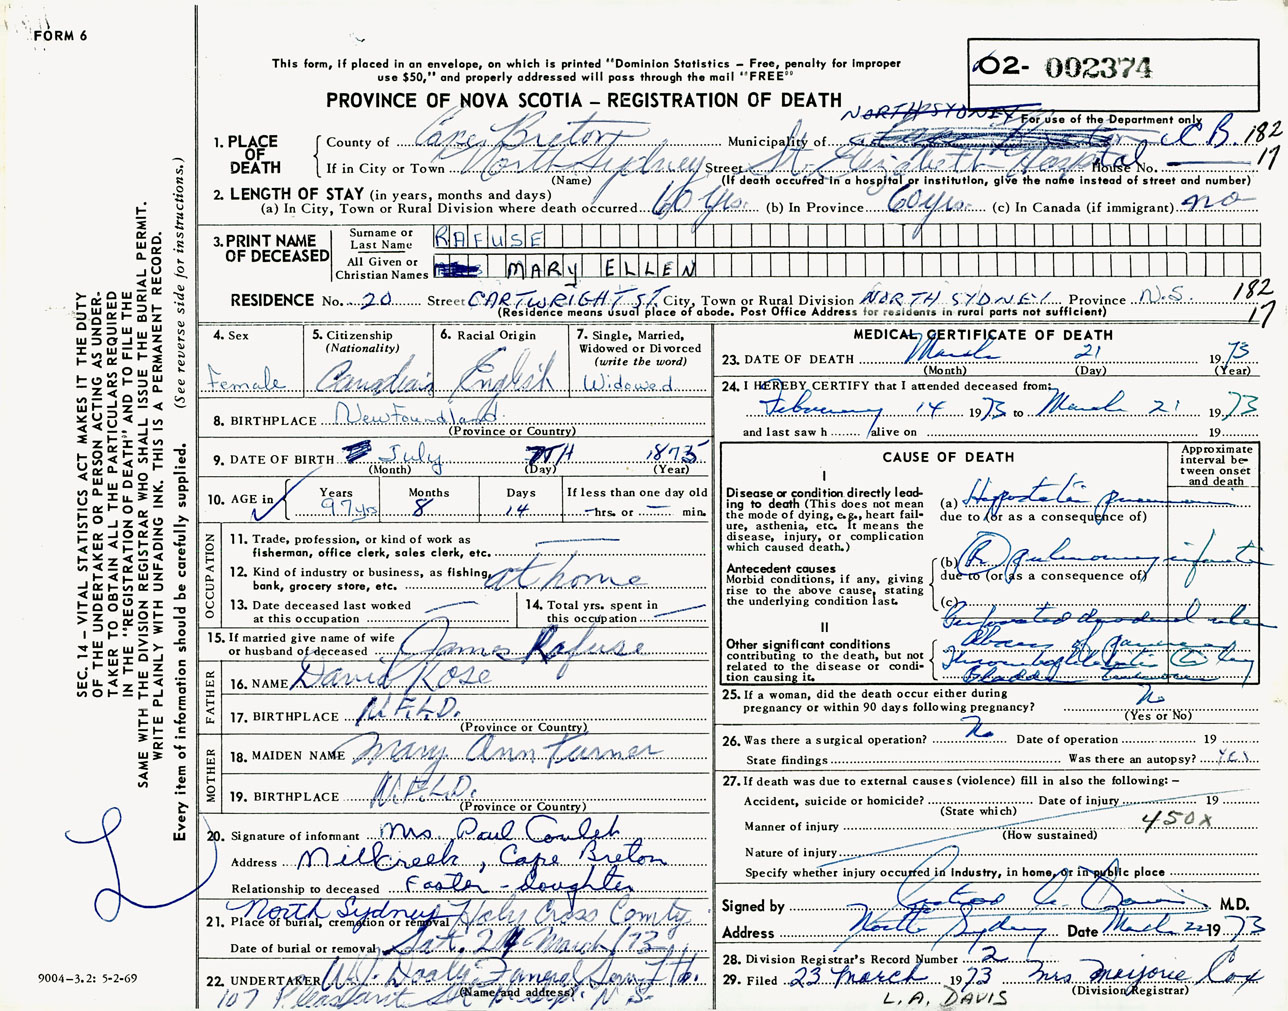 FORM 6
This form, if placed in an envelope, on which is printed "Dominion Statistics – Free, penalty for improper
use $50," and properly addressed will pass through the mail "FREE"
02- 002374
PROVINCE OF NOVA SCOTIA – REGISTRATION OF DEATH
NORTH SYDNEY
For use of the Department only
1. PLACE OF DEATH
County of Cape Breton Municipality of C.B. 182
If in City or Town North Sydney Street St. Elizabeth Hospital House No. 17
(Name) (If death occurred in a hospital or institution, give the name instead of street and number)
2. LENGTH OF STAY (in years, months and days)
(a) In City, Town or Rural Division where death occurred 60 yrs. (b) In Province 60 yrs. (c) In Canada (if immigrant) no
3. PRINT NAME OF DECEASED
Surname or Last Name RAFUSE
All Given or Christian Names MARY ELLEN
RESIDENCE No. 20 Street CARTWRIGHT ST. City, Town or Rural Division NORTH SYDNEY Province N.S. 182
(Residence means usual place of abode. Post Office Address for residents in rural parts not sufficient) 17
4. Sex
Female
5. Citizenship (Nationality)
Canadian
6. Racial Origin
English
7. Single, Married, Widowed or Divorced (write the word)
Widowed
8. BIRTHPLACE Newfoundland
(Province or Country)
9. DATE OF BIRTH July 7TH 1875
(Month) (Day) (Year)
10. AGE in
Years Months Days If less than one day old
97 yrs 8 14 hrs. or min.
OCCUPATION
11. Trade, profession, or kind of work as
fisherman, office clerk, sales clerk, etc.
12. Kind of industry or business, as fishing,
bank, grocery store, etc. at home
13. Date deceased last worked
at this occupation
14. Total yrs. spent in
this occupation
15. If married give name of wife
or husband of deceased James Rafuse
FATHER
16. NAME David Rose
17. BIRTHPLACE N.F.L.D.
(Province or Country)
MOTHER
18. MAIDEN NAME Mary Ann Turner
19. BIRTHPLACE N.F.L.D.
(Province or Country)
20. Signature of informant Mrs Paul
Address Millcreek, Cape Breton
Relationship to deceased Foster-daughter
21. Place of burial, cremation or removal North Sydney Holy Cross
Date of burial or removal Sat. 24 March 1973
22. UNDERTAKER W.J. Dooley Funeral Serv. Ltd.
(Name and address)
107 Pleasant St. N.S.
MEDICAL CERTIFICATE OF DEATH
23. DATE OF DEATH March 21 1973
(Month) (Day) (Year)
24. I HEREBY CERTIFY that I attended deceased from:
February 14 1973 to March 21 1973
and last saw h alive on 19
CAUSE OF DEATH
Approximate interval between onset and death
I
Disease or condition directly leading to death (This does not mean the mode of dying, e.g., heart failure, asthenia, etc. It means the disease, injury, or complication which caused death.)
(a) Hypostatic pneumonia
due to (or as a consequence of)
Antecedent causes
Morbid conditions, if any, giving rise to the above cause, stating the underlying condition last.
(b) (R) pulmonary infarction
due to (or as a consequence of)
(c)
II
Other significant conditions
contributing to the death, but not related to the disease or condition causing it.
Perforated duodenal ulcer
Abscess of pancreas
Thrombophlebitis (L) leg
Bladder
25. If a woman, did the death occur either during
pregnancy or within 90 days following pregnancy? No
(Yes or No)
26. Was there a surgical operation? No Date of operation 19
State findings Was there an autopsy? Yes
27. If death was due to external causes (violence) fill in also the following: –
Accident, suicide or homicide? Date of injury 19
(State which)
Manner of injury 450X
(How sustained)
Nature of injury
Specify whether injury occurred in industry, in home, or in public place
Signed by M.D.
Address North Sydney Date March 22 1973
28. Division Registrar's Record Number 2
29. Filed 23 March 1973 Mrs Marjorie Cox
(Division Registrar)
L.A. DAVIS
SEC. 14 – VITAL STATISTICS ACT MAKES IT THE DUTY
OF THE UNDERTAKER OR PERSON ACTING AS UNDER-
TAKER TO OBTAIN ALL THE PARTICULARS REQUIRED
IN THE "REGISTRATION OF DEATH" AND TO FILE THE
SAME WITH THE DIVISION REGISTRAR WHO SHALL ISSUE THE BURIAL PERMIT.
WRITE PLAINLY WITH UNFADING INK. THIS IS A PERMANENT RECORD.
Every item of information should be carefully supplied. (See reverse side for instructions.)
9004–3.2: 5-2-69